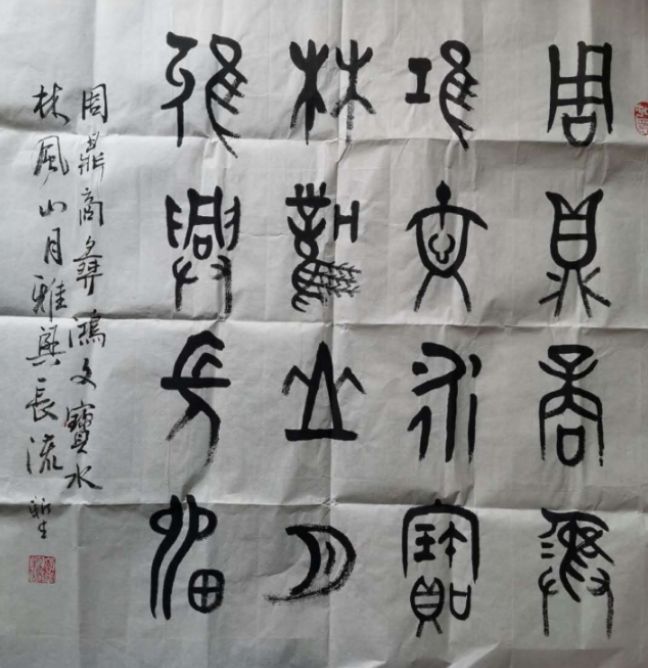 周鼎商彝
鴻文永寶
林風山月
雅興長留
周鼎商彝鴻文寶水
林風山月雅興長流